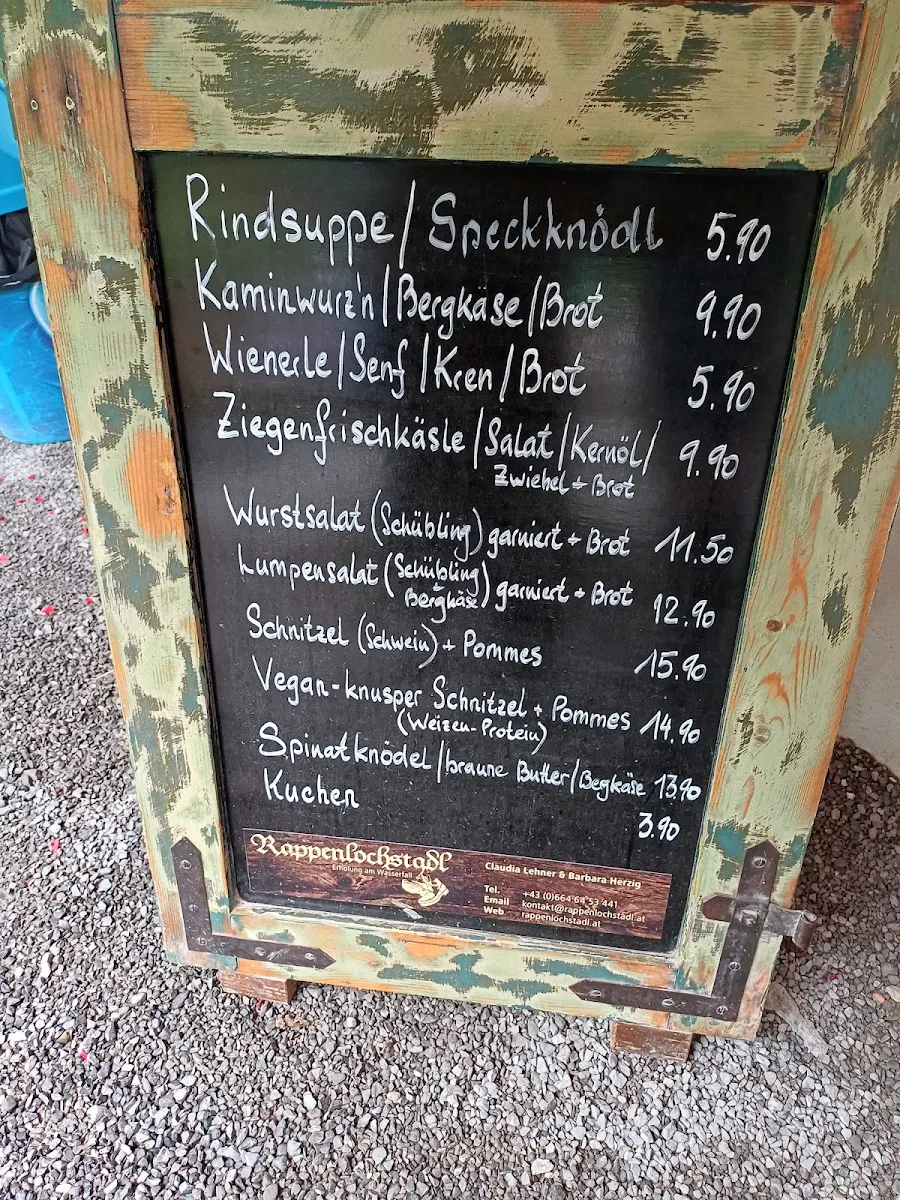 Rindsuppe/Speckknödl 5.90
Kaminwurz'n/Bergkäse/Brot 9.90
Wienerle/Senf/Kren/Brot 5.90
Ziegenfrischkäsle/Salat/Kernöl/ 9.90
Zwiebel + Brot
Wurstsalat (Schübling) garniert + Brot 11.50
Lumpensalat (Schübling + Bergkäse) garniert + Brot 12.90
Schnitzel (Schwein) + Pommes 15.90
Vegan-knusper Schnitzel + Pommes 14.90
(Weizen-Protein)
Spinatknödel/braune Butter/Begkäse 13.90
Kuchen 3.90
Rappenlochstadl
Erholung am Wasserfall
Claudia Lehner & Barbara Herzig
Tel. +43 (0)664 64 53 441
Email kontakt@rappenlochstadl.at
Web rappenlochstadl.at